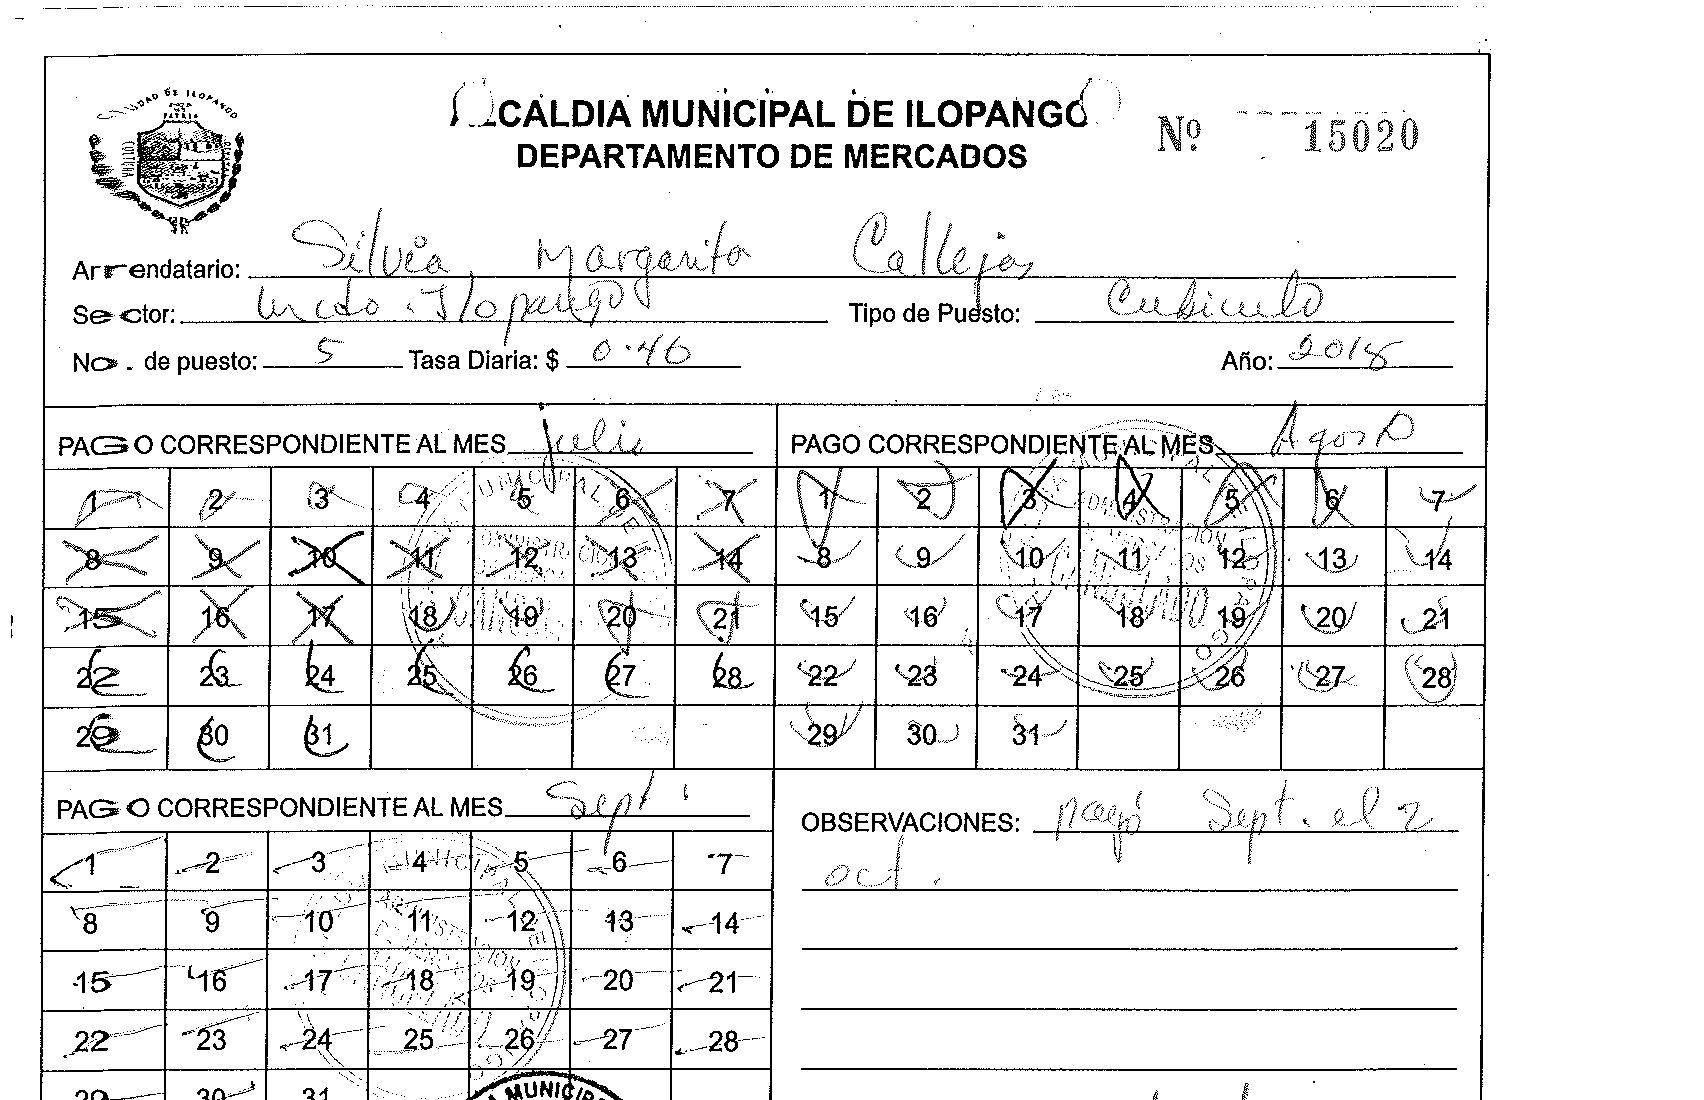 CIUDAD DE ILOPANGO
ALCALDIA MUNICIPAL DE ILOPANGO
DEPARTAMENTO DE MERCADOS
Nº 15020
Arrendatario: Silvia Margarita Callejas
Sector: Mcdo. Ilopango Tipo de Puesto: Cubiculo
No. de puesto: 5 Tasa Diaria: $ 0.46 Año: 2018
PAGO CORRESPONDIENTE AL MES julio
1 2 3 4 5 6 7
8 9 10 11 12 13 14
15 16 17 18 19 20 21
22 23 24 25 26 27 28
29 30 31
PAGO CORRESPONDIENTE AL MES Agosto
1 2 3 4 5 6 7
8 9 10 11 12 13 14
15 16 17 18 19 20 21
22 23 24 25 26 27 28
29 30 31
PAGO CORRESPONDIENTE AL MES Sept
1 2 3 4 5 6 7
8 9 10 11 12 13 14
15 16 17 18 19 20 21
22 23 24 25 26 27 28
29 30 31
OBSERVACIONES: pagó Sept. el 2
oct.
MUNICIPA